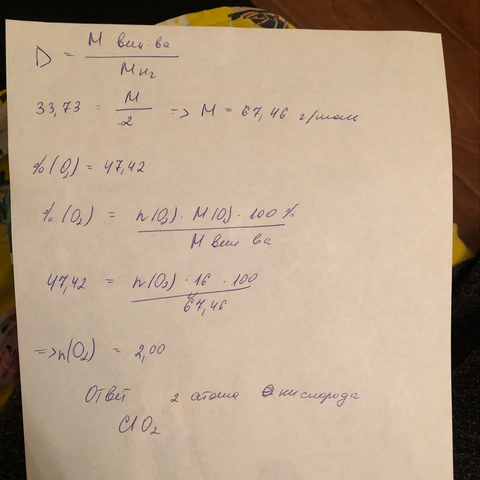 D = M вещ-ва / M H2
33,73 = M / 2 => M = 67,46 г/моль
%(O2) = 47,42
%(O2) = n(O2) · M(O) · 100 % / M вещ ва
47,42 = n(O2) · 16 · 100 / 67,46
=> n(O2) = 2,00
Ответ 2 атома кислорода
ClO2